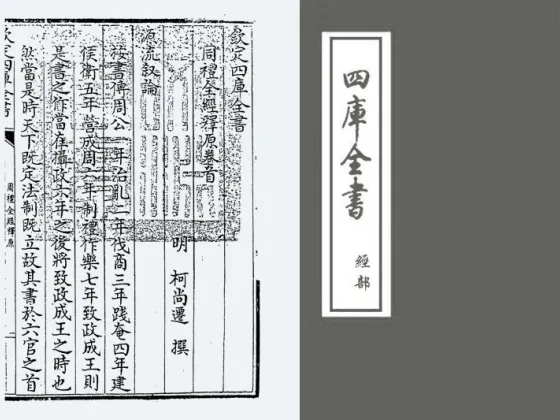 四庫全書
經部
欽定四庫全書
周禮全經釋原卷首
明 柯尚遷 撰
源流叙論
按書傳周公一年治亂二年伐商三年踐奄四年建
侯衛五年營成周六年制禮作樂七年致政成王則
是書之作當在攝政六年之後將致政成王之時也
然當是時天下既定法制既立故其書於六官之首
欽定四庫全書
周禮全經釋原